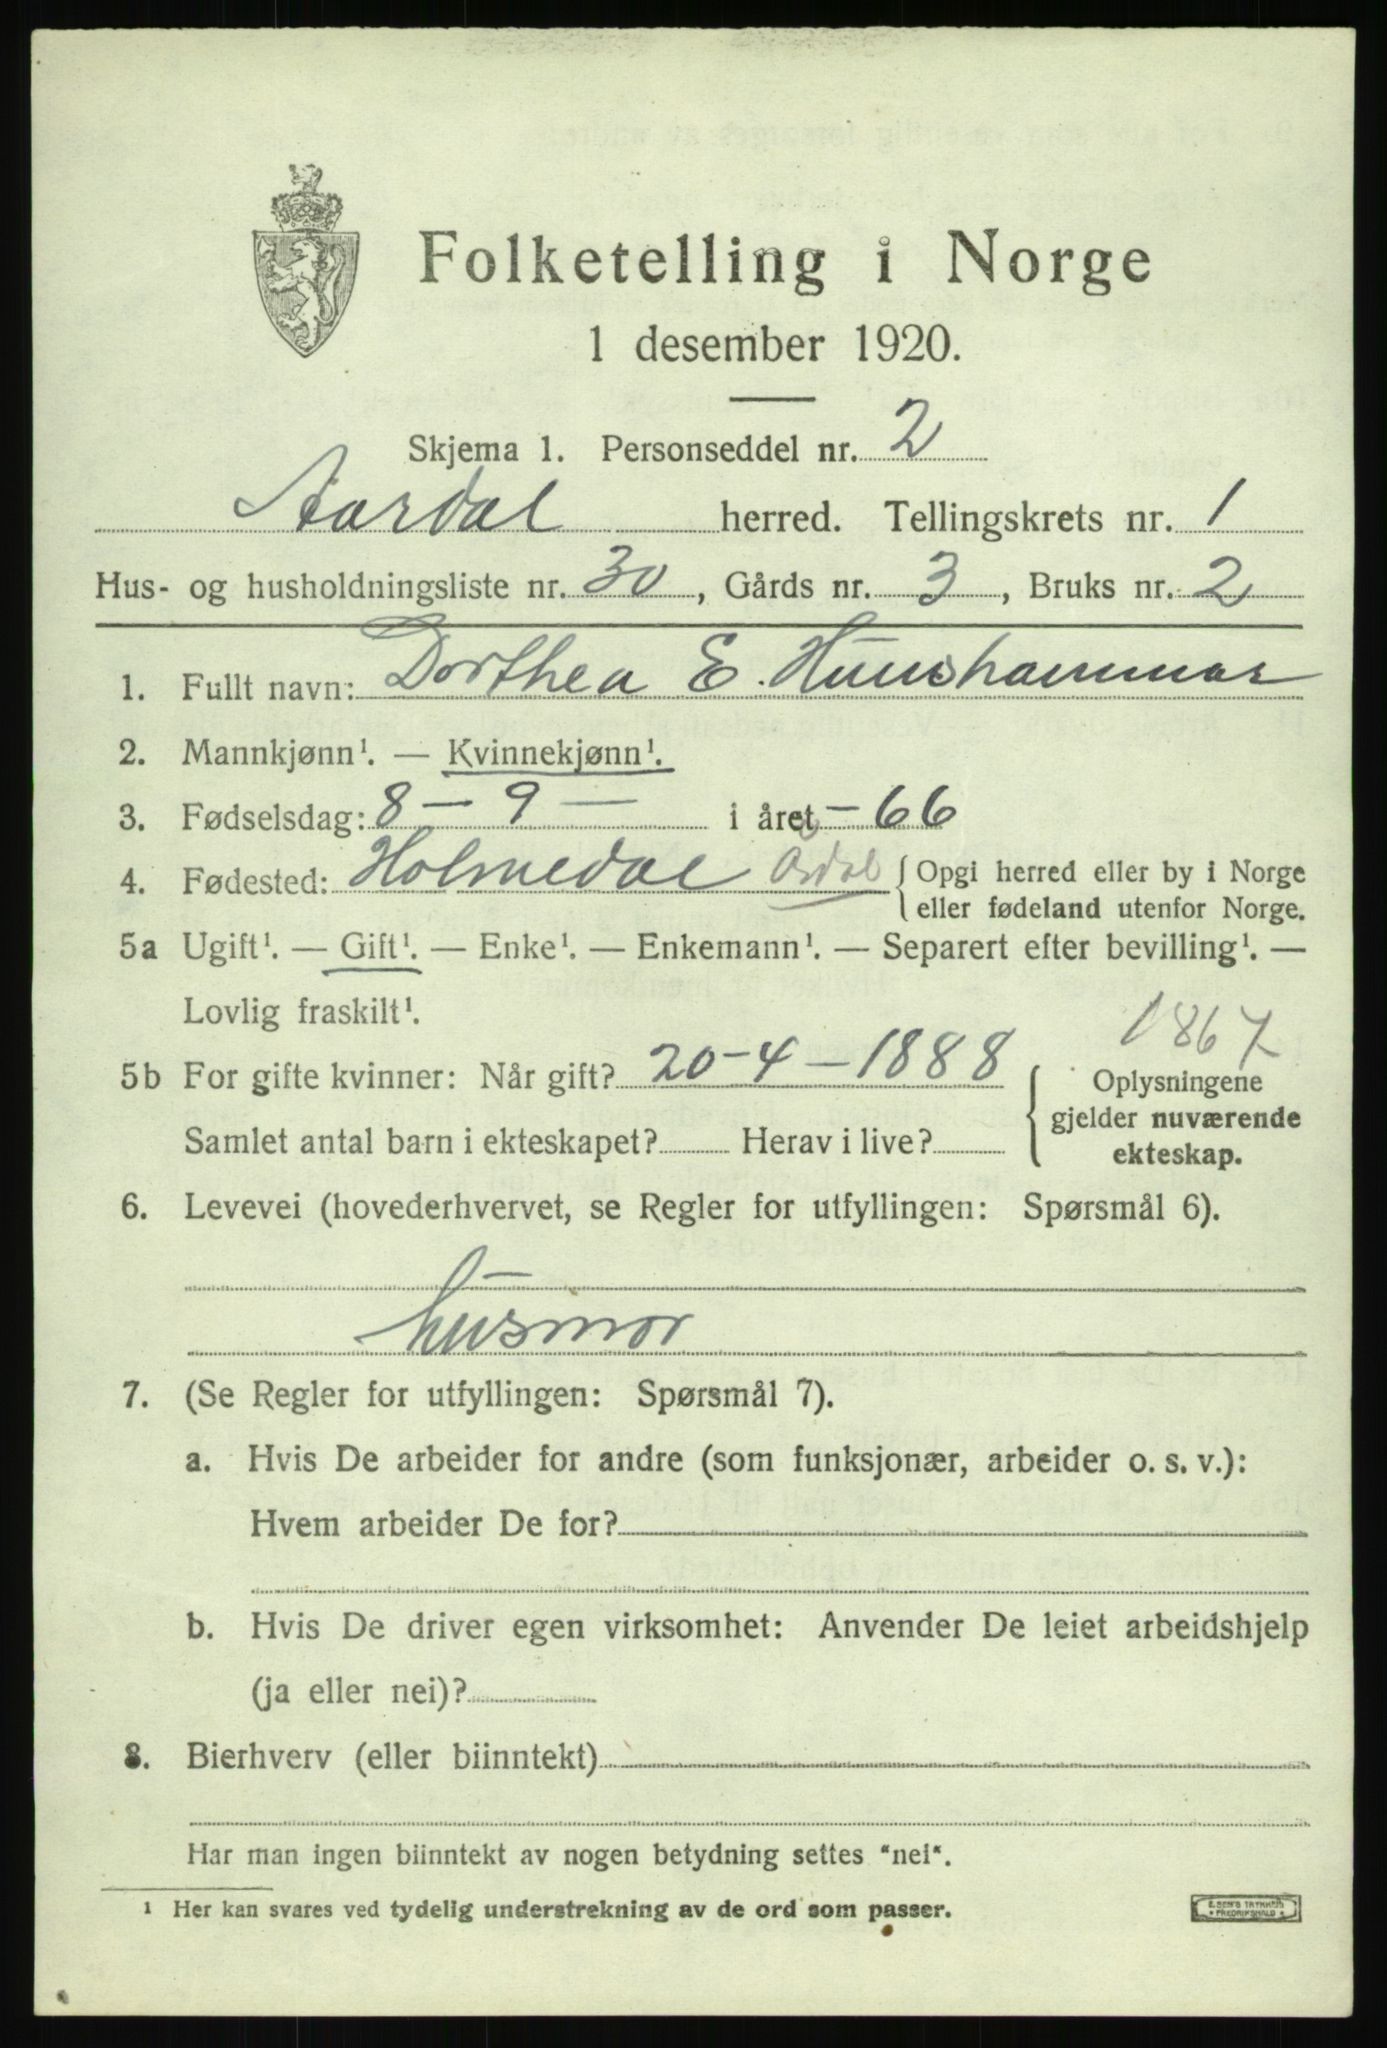 Folketelling i Norge
1 desember 1920.
Skjema 1. Personseddel nr. 2
Aardal herred. Tellingskrets nr. 1
Hus- og husholdningsliste nr. 30, Gårds nr. 3, Bruks nr. 2
1. Fullt navn: Dorthea E. Hunshammar
2. Mannkjønn¹. — Kvinnekjønn¹.
3. Fødselsdag: 8 — 9 — i året — 66
4. Fødested: Holmedal Årdal { Opgi herred eller by i Norge
eller fødeland utenfor Norge.
5a Ugift¹. — Gift¹. — Enke¹. — Enkemann¹. — Separert efter bevilling¹. —
Lovlig fraskilt¹.
1867
5b For gifte kvinner: Når gift? 20-4-1888 { Oplysningene
gjelder nuværende
Samlet antal barn i ekteskapet? Herav i live?
ekteskap.
6. Levevei (hovederhvervet, se Regler for utfyllingen: Spørsmål 6).
husmor
7. (Se Regler for utfyllingen: Spørsmål 7).
a. Hvis De arbeider for andre (som funksjonær, arbeider o. s. v.):
Hvem arbeider De for?
b. Hvis De driver egen virksomhet: Anvender De leiet arbeidshjelp
(ja eller nei)?
8. Bierhverv (eller biinntekt)
Har man ingen biinntekt av nogen betydning settes "nei".
¹ Her kan svares ved tydelig understrekning av de ord som passer.
FREDRIKSHALD